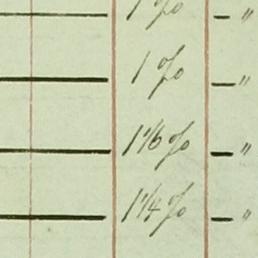 1 % — "
1 % — "
1 1/6 % — "
1 1/4 % — "